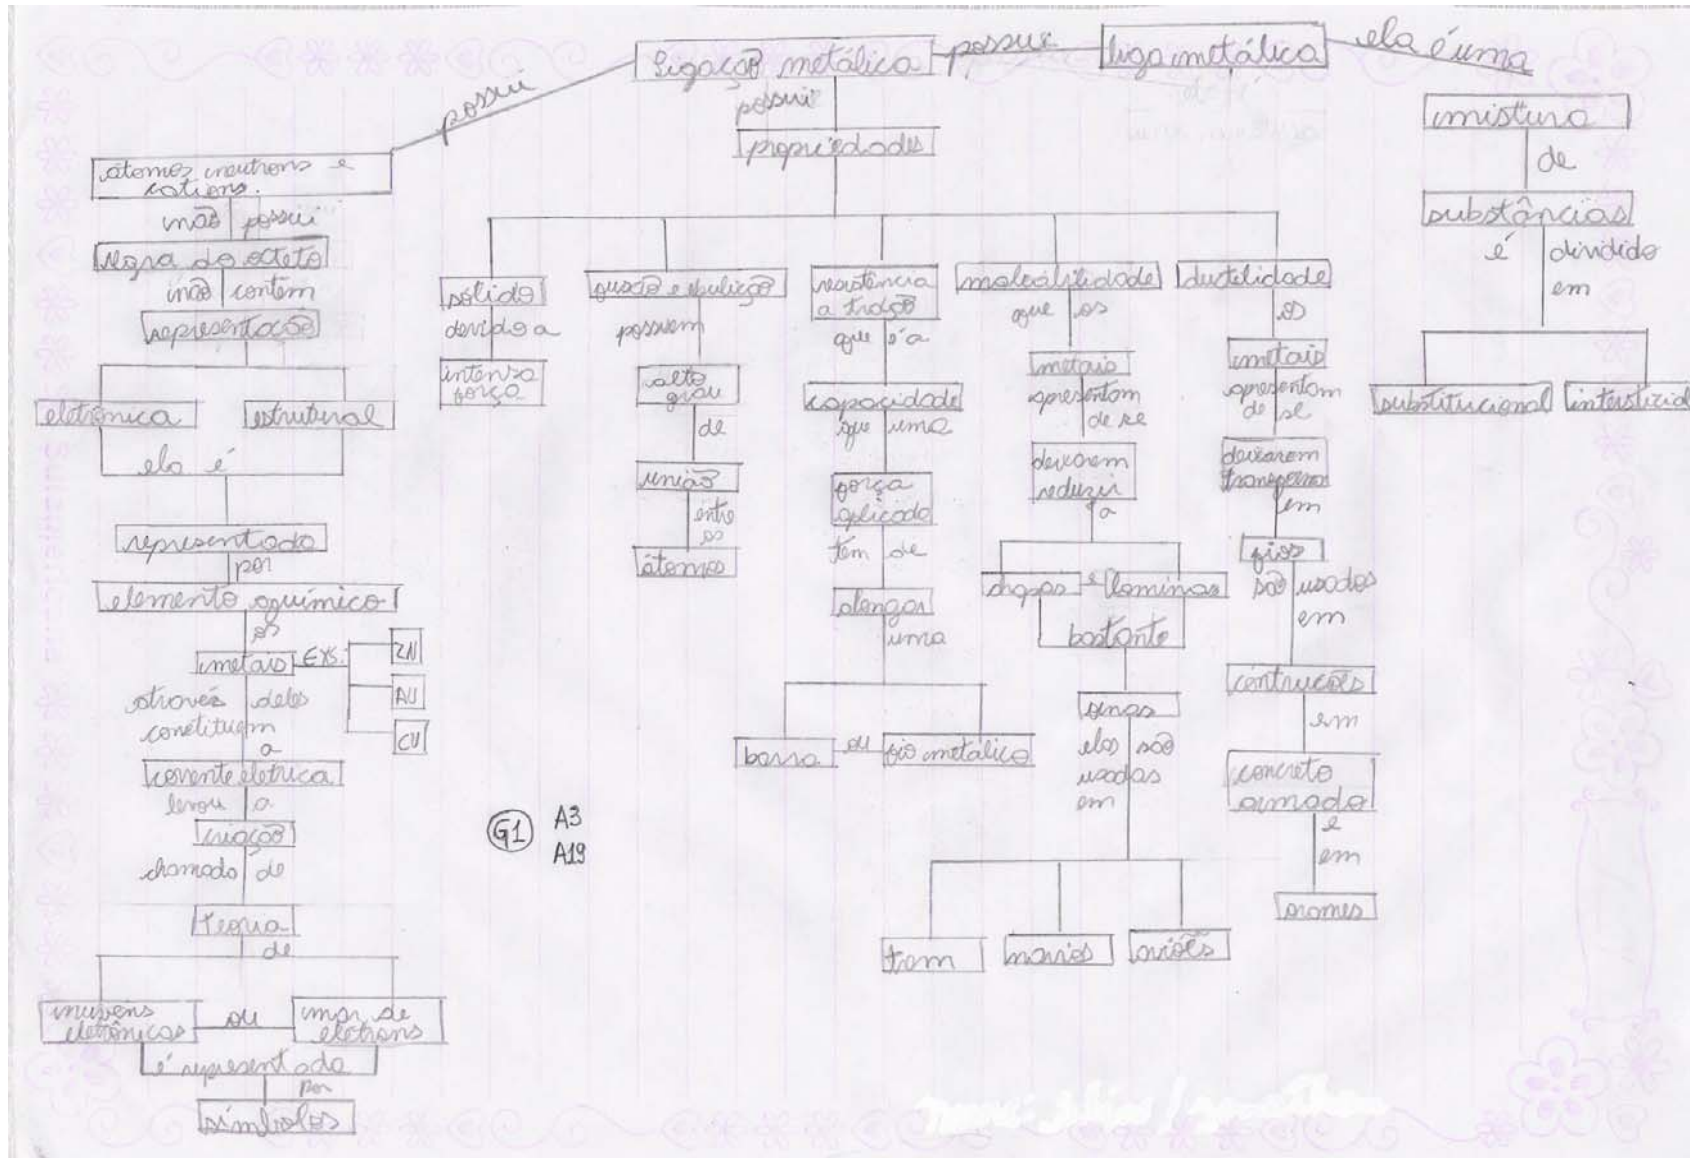 ligação metálica
possui
liga metálica
ela é uma
possui
possui
propriedades
mistura
de
substâncias
é dividido
em
substitucional
interstícial
átomos neutrons e
cations.
não possui
regra do octeto
não contem
representação
eletrônica
estrutural
ela é
representado
por
elemento químico
os
metais
EXS:
ZN
AU
CU
através deles
constituem
a
corrente eletrica
levou a
criação
chamado de
teoria
de
nuvens
eletrônicas
ou
mar de
eletrons
é representado
por
símbolos
sólido
devido a
intensa
força
fusão e ebulição
possuem
alto
grau
de
união
entre
os
átomos
resistência
a tração
que é a
capacidade
que uma
força
aplicada
tem de
alongar
uma
barra
ou
fio metálico
maleabilidade
que os
metais
apresentam
de se
deixarem
reduzir
a
chapas
e
laminas
bastante
finas
elas são
usadas
em
trem
navios
aviões
ductelidade
os
metais
apresentam
de se
deixarem
em
fios
são usados
em
contrucões
em
concreto
armado
e
em
arames
G1
A3
A19